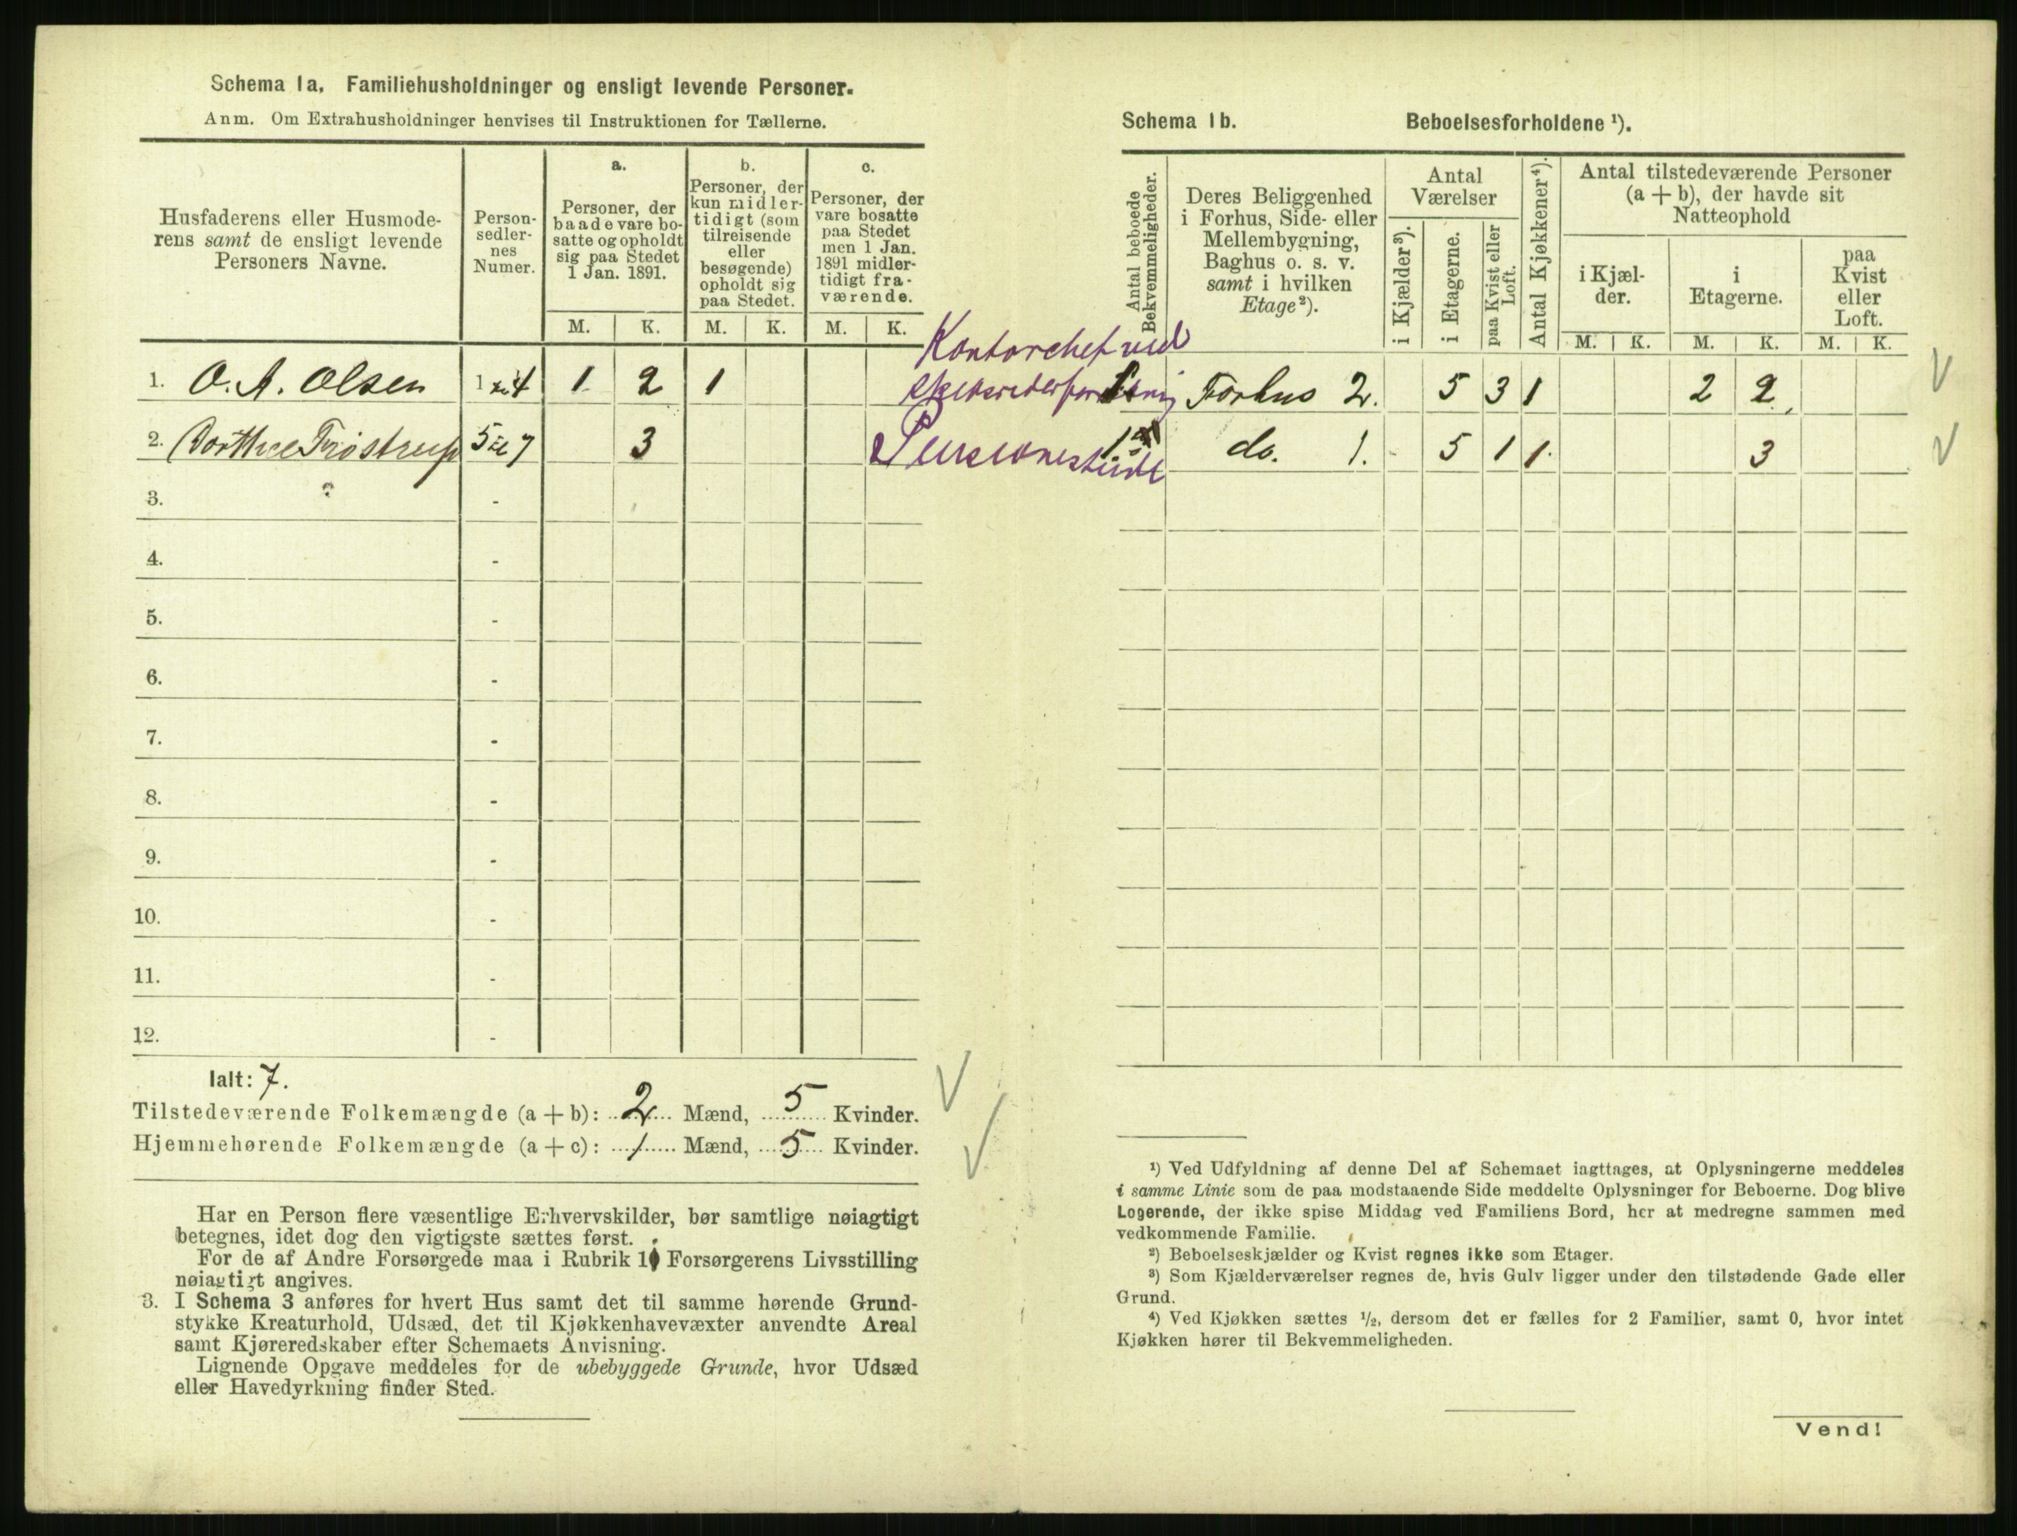 Schema 1a. Familiehusholdninger og ensligt levende Personer.
Anm. Om Extrahusholdninger henvises til Instruktionen for Tællerne.
Husfaderens eller Husmode-
rens samt de ensligt levende
Personers Navne.
Person-
sedler-
nes
Numer.
a.
Personer, der
baade vare bo-
satte og opholdt
sig paa Stedet
1 Jan. 1891.
b.
Personer, der
kun midler-
tidigt (som
tilreisende
eller
besøgende)
opholdt sig
paa Stedet.
c.
Personer, der
vare bosatte
paa Stedet
men 1 Jan.
1891 midler-
tidigt fra-
værende.
M. K. M. K. M. K.
1. O. A. Olsen 1 til 4 1 2 1
2. Dorthea Trøstrup 5 til 7 3
3. -
4. -
5. -
6. -
7. -
8. -
9. -
10. -
11. -
12. -
Ialt: 7.
Tilstedeværende Folkemængde (a + b): 2 Mænd, 5 Kvinder.
Hjemmehørende Folkemængde (a + c): 1 Mænd, 5 Kvinder.
Har en Person flere væsentlige Erhvervskilder, bør samtlige nøiagtigt
betegnes, idet dog den vigtigste sættes først.
For de af Andre Forsørgede maa i Rubrik 10 Forsørgerens Livsstilling
nøiagtigt angives.
3. I Schema 3 anføres for hvert Hus samt det til samme hørende Grund-
stykke Kreaturhold, Udsæd, det til Kjøkkenhavevæxter anvendte Areal
samt Kjøreredskaber efter Schemaets Anvisning.
Lignende Opgave meddeles for de ubebyggede Grunde, hvor Udsæd
eller Havedyrkning finder Sted.
Schema 1b. Beboelsesforholdene ¹).
Antal beboede
Bekvemmeligheder.
Deres Beliggenhed
i Forhus, Side- eller
Mellembygning,
Baghus o. s. v.
samt i hvilken
Etage²).
Antal
Værelser
i Kjælder³).
i Etagerne.
paa Kvist eller
Loft.
Antal Kjøkkener⁴).
Antal tilstedeværende Personer
(a + b), der havde sit
Natteophold
i Kjæl-
der.
i
Etagerne.
paa
Kvist
eller
Loft.
M. K. M. K. M. K.
Kontorchef ved
1 Forhus 2. 5 3 1 2 2
1 do. 1. 5 1 1 3
¹) Ved Udfyldning af denne Del af Schemaet iagttages, at Oplysningerne meddeles
i samme Linie som de paa modstaaende Side meddelte Oplysninger for Beboerne. Dog blive
Logerende, der ikke spise Middag ved Familiens Bord, her at medregne sammen med
vedkommende Familie.
²) Beboelseskjælder og Kvist regnes ikke som Etager.
³) Som Kjælderværelser regnes de, hvis Gulv ligger under den tilstødende Gade eller
Grund.
⁴) Ved Kjøkken sættes ½, dersom det er fælles for 2 Familier, samt 0, hvor intet
Kjøkken hører til Bekvemmeligheden.
Vend!